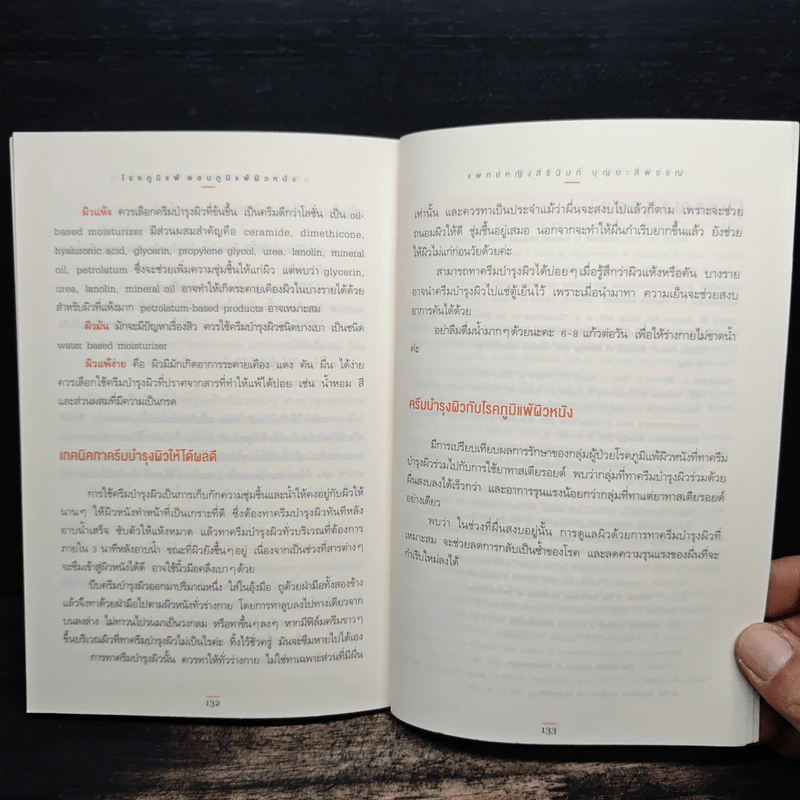 โรคภูมิแพ้ ตอนภูมิแพ้ผิวหนัง
ผิวแห้ง ควรเลือกครีมบำรุงผิวที่ข้นขึ้น เป็นครีมดีกว่าโลชั่น เป็น oil-
based moisturizer มีส่วนผสมสำคัญคือ ceramide, dimethicone,
hyaluronic acid, glycerin, propylene glycol, urea, lanolin, mineral
oil, petrolatum ซึ่งจะช่วยเพิ่มความชุ่มชื้นให้แก่ผิว แต่พบว่า glycerin,
urea, lanolin, mineral oil อาจทำให้เกิดระคายเคืองผิวในบางรายได้ด้วย
สำหรับผิวที่แห้งมาก petrolatum-based products อาจเหมาะสม
ผิวมัน มักจะมีปัญหาเรื่องสิว ควรใช้ครีมบำรุงผิวชนิดบางเบา เป็นชนิด
water based moisturizer
ผิวแพ้ง่าย คือ ผิวมีมักเกิดอาการระคายเคือง แดง คัน ผื่น ได้ง่าย
ควรเลือกใช้ครีมบำรุงผิวที่ปราศจากสารที่ทำให้แพ้ได้บ่อย เช่น น้ำหอม สี
และส่วนผสมที่มีความเป็นกรด
เทคนิคทาครีมบำรุงผิวให้ได้ผลดี
การใช้ครีมบำรุงผิวเป็นการเก็บกักความชุ่มชื้นและน้ำให้คงอยู่กับผิวให้
นานๆ ให้ผิวหนังทำหน้าที่เป็นเกราะที่ดี ซึ่งต้องทาครีมบำรุงผิวทันทีหลัง
อาบน้ำเสร็จ ซับตัวให้แห้งหมาด แล้วทาครีมบำรุงผิวทั่วบริเวณที่ต้องการ
ภายใน 3 นาทีหลังอาบน้ำ ขณะที่ผิวยังชื้นๆ อยู่ เนื่องจากเป็นช่วงที่สารต่างๆ
จะซึมเข้าสู่ผิวหนังได้ดี อาจใช้นิ้วมือคลึงเบาๆ ด้วย
บีบครีมบำรุงผิวออกมาปริมาณหนึ่ง ใส่ในอุ้งมือ ถูด้วยฝ่ามือทั้งสองข้าง
แล้วจึงทาด้วยฝ่ามือไปตามผิวหนังทั่วร่างกาย โดยการทาลูบลงไปทางเดียวจาก
บนลงล่าง ไม่ทาวนไปวนมาเป็นวงกลม หรือทาขึ้นๆ ลงๆ หากมีฟิล์มครีมขาวๆ
ขึ้นบริเวณผิวที่ทาครีมบำรุงผิวไม่เป็นไรค่ะ ทิ้งไว้ชั่วครู่ มันจะซึมหายไปได้เอง
การทาครีมบำรุงผิวนั้น ควรทาให้ทั่วร่างกาย ไม่ใช่ทาเฉพาะส่วนที่มีผื่น
132
แพทย์หญิงสิรินันท์ บุญยะลีพรรณ
เท่านั้น และควรทาเป็นประจำแม้ว่าผื่นจะสงบไปแล้วก็ตาม เพราะจะช่วย
ถนอมผิวให้ดี ชุ่มชื้นอยู่เสมอ นอกจากจะทำให้ผื่นกำเริบยากขึ้นแล้ว ยังช่วย
ให้ผิวไม่แก่ก่อนวัยด้วยค่ะ
สามารถทาครีมบำรุงผิวได้บ่อยๆ เมื่อรู้สึกว่าผิวแห้งหรือคัน บางราย
อาจนำครีมบำรุงผิวไปแช่ตู้เย็นไว้ เพราะเมื่อนำมาทา ความเย็นจะช่วยสงบ
อาการคันได้ด้วย
อย่าลืมดื่มน้ำมากๆ ด้วยนะคะ 6-8 แก้วต่อวัน เพื่อให้ร่างกายไม่ขาดน้ำ
ค่ะ
ครีมบำรุงผิวกับโรคภูมิแพ้ผิวหนัง
มีการเปรียบเทียบผลการรักษาของกลุ่มผู้ป่วยโรคภูมิแพ้ผิวหนังที่ทาครีม
บำรุงผิวร่วมไปกับการใช้ยาทาสเตียรอยด์ พบว่ากลุ่มที่ทาครีมบำรุงผิวร่วมด้วย
ผื่นสงบลงได้เร็วกว่า และอาการรุนแรงน้อยกว่ากลุ่มที่ทาแต่ยาทาสเตียรอยด์
อย่างเดียว
พบว่า ในช่วงที่ผื่นสงบอยู่นั้น การดูแลผิวด้วยการทาครีมบำรุงผิวที่
เหมาะสม จะช่วยลดการกลับเป็นซ้ำของโรค และลดความรุนแรงของผื่นที่จะ
กำเริบใหม่ลงได้
133